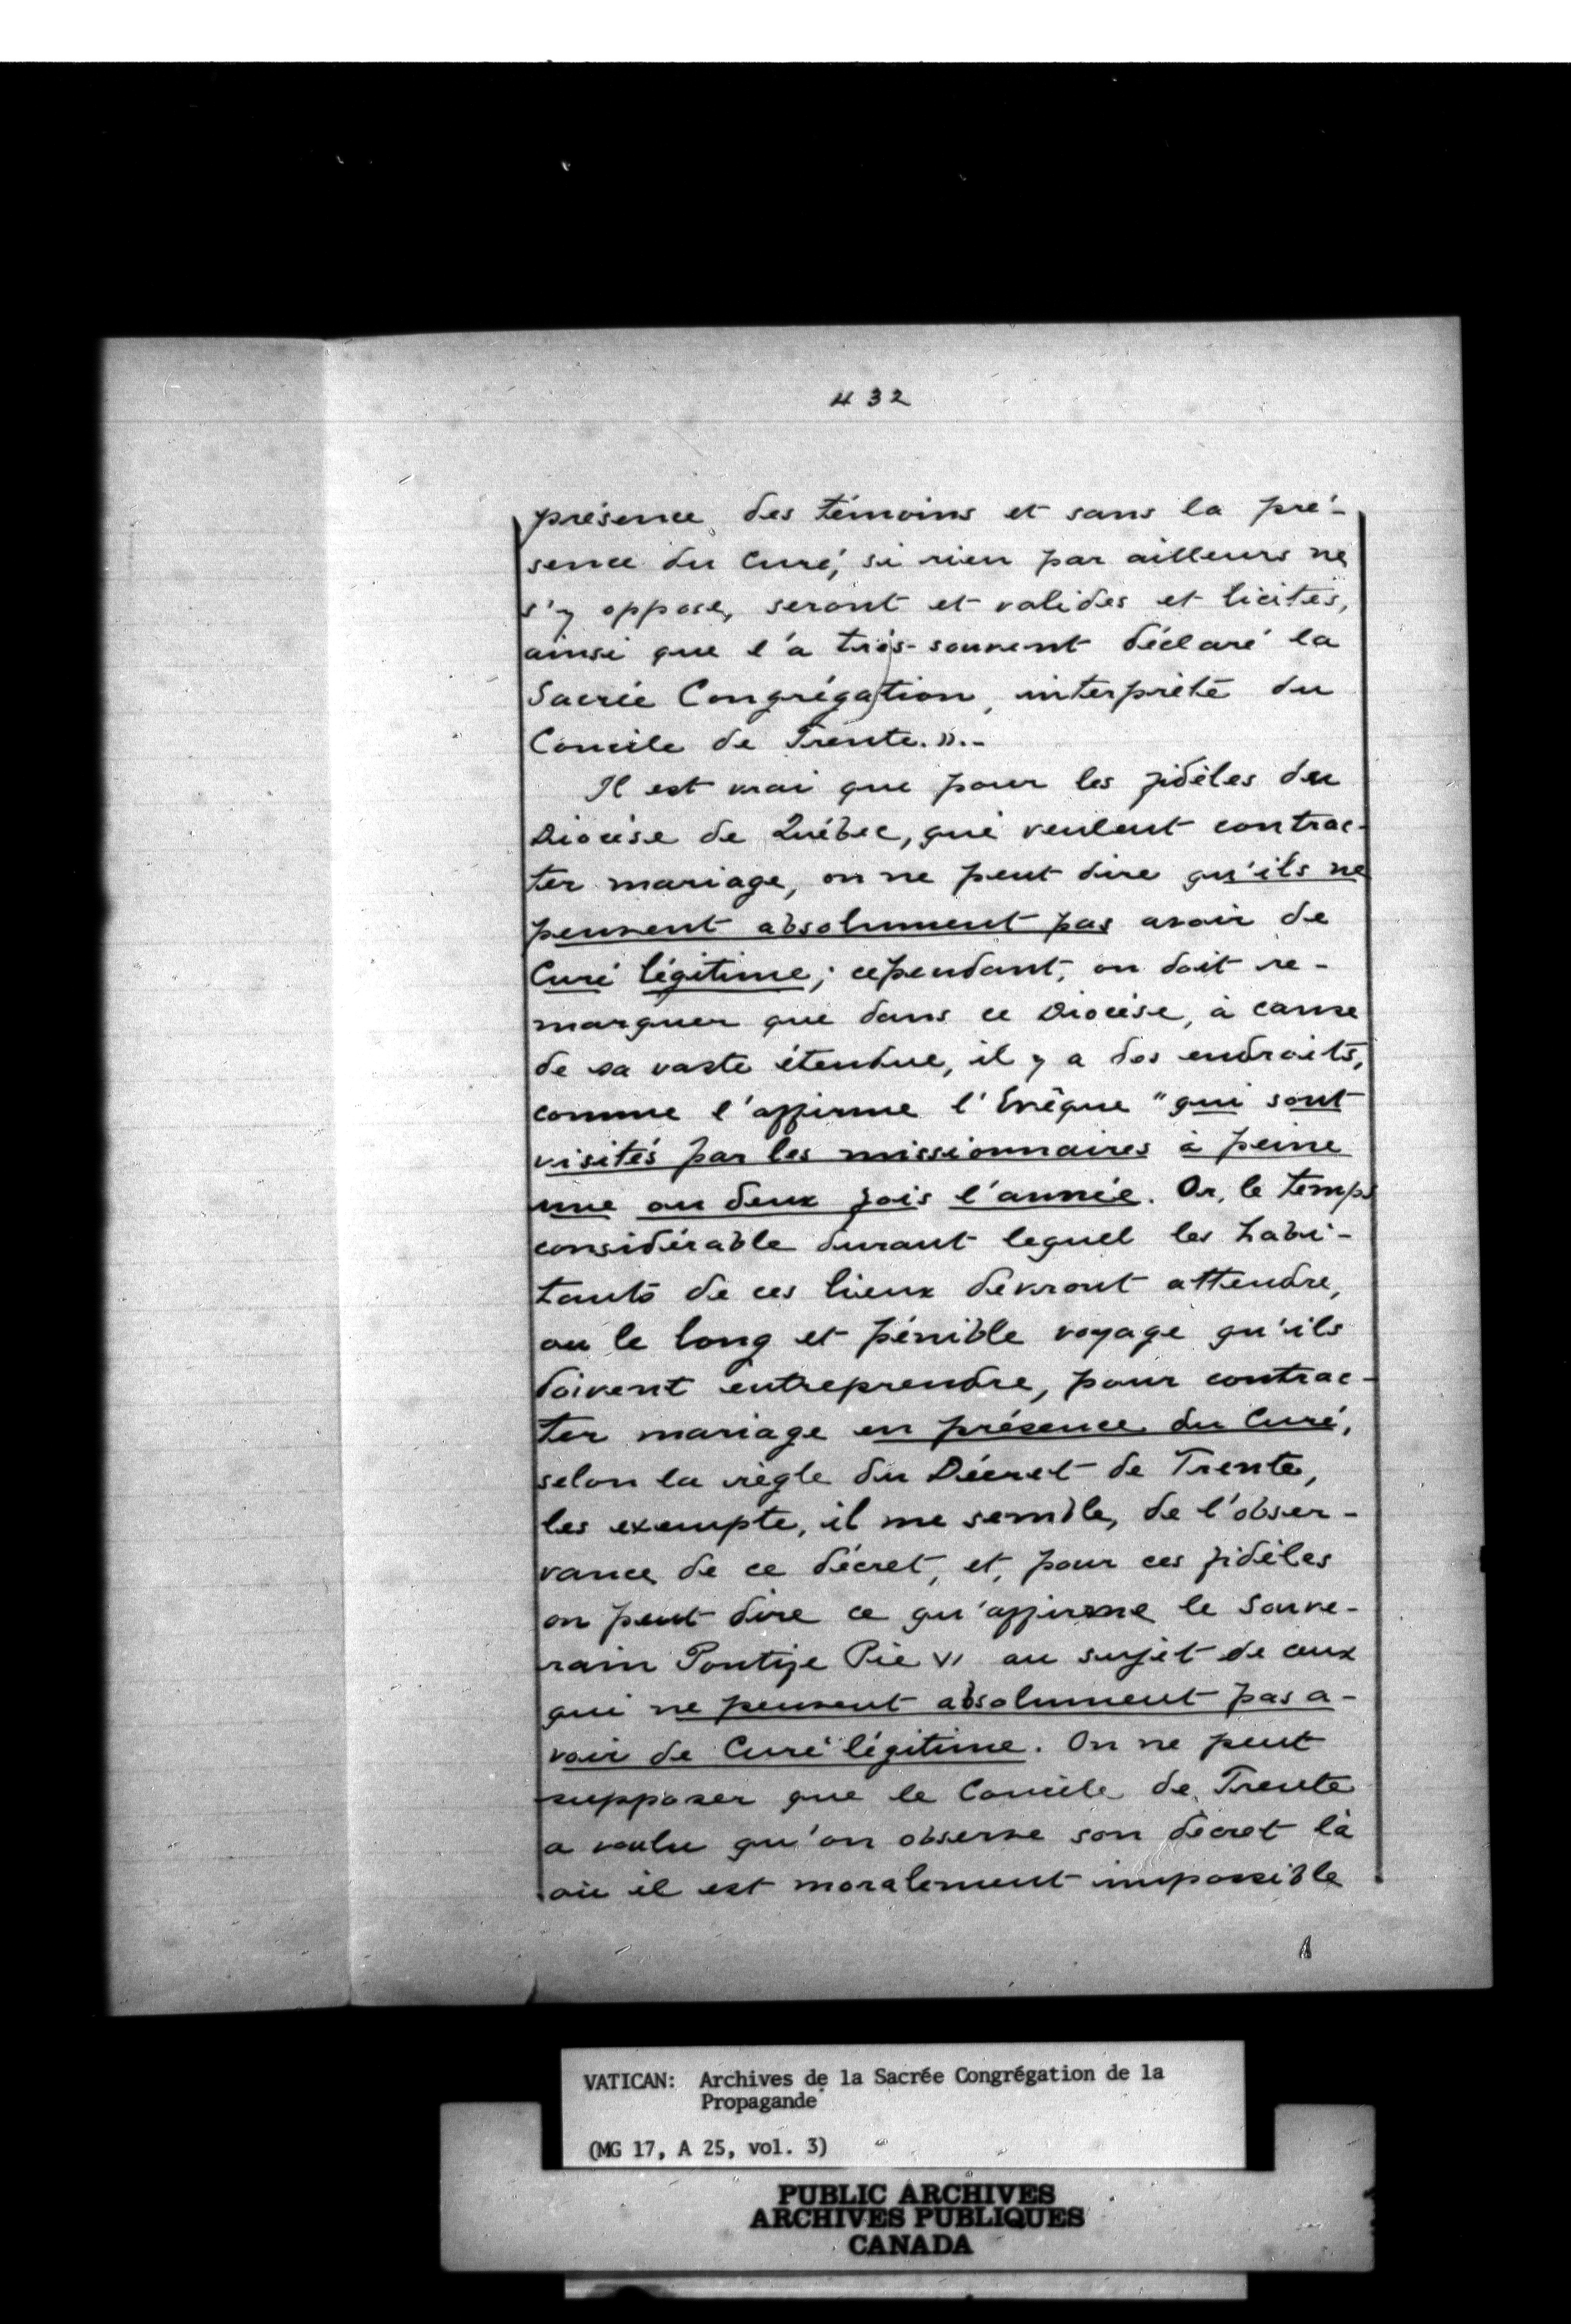 432
présence des témoins et sans la pré-
sence du Curé, si rien par ailleurs ne
s'y oppose, seront et valides et licites,
ainsi que l'a très-souvent déclaré la
Sacrée Congrégation, interprète du
Concile de Trente.».-
Il est vrai que pour les fidèles du
Diocèse de Québec, qui veulent contrac-
ter mariage, on ne peut dire qu'ils ne
peuvent absolument pas avoir de
Curé légitime; cependant, on doit re-
marquer que dans ce Diocèse, à cause
de sa vaste étendue, il y a des endroits,
comme l'affirme l'Evêque "qui sont
visités par les missionnaires à peine
une ou deux fois l'année. Or, le temps
considérable durant lequel les habi-
tants de ces lieux devront attendre,
ou le long et pénible voyage qu'ils
doivent entreprendre, pour contrac-
ter mariage en présence du Curé,
selon la règle du Décret de Trente,
les exempte, il me semble, de l'obser-
vance de ce décret, et, pour ces fidèles
on peut dire ce qu'affirme le Souve-
rain Pontife Pie VI au sujet de ceux
qui ne peuvent absolument pas a-
voir de Curé légitime. On ne peut
supposer que le Concile de Trente
a voulu qu'on observe son décret là
où il est moralement impossible
VATICAN: Archives de la Sacrée Congrégation de la
Propagande
(MG 17, A 25, vol. 3)
PUBLIC ARCHIVES
ARCHIVES PUBLIQUES
CANADA